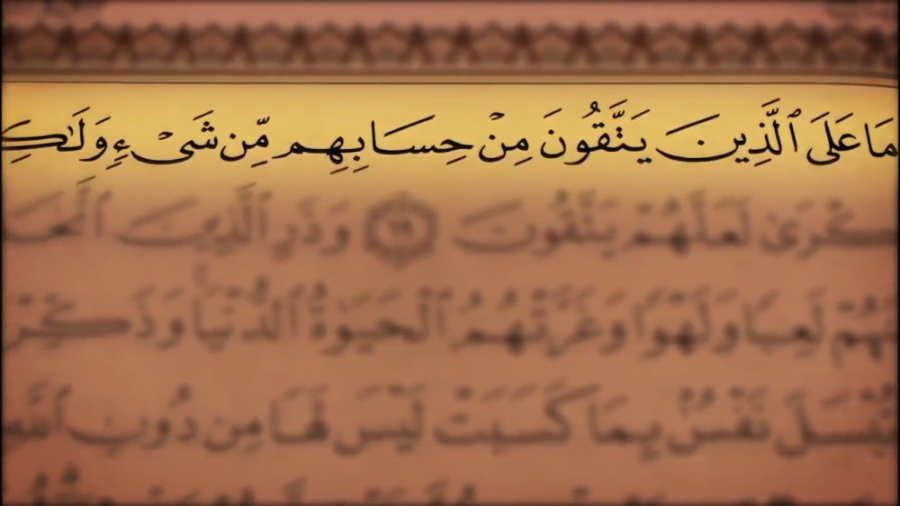 مَا عَلَى ٱلَّذِينَ يَتَّقُونَ مِنْ حِسَابِهِم مِّن شَىْءٍ وَلَٰكِ
كْرَىٰ لَعَلَّهُمْ يَتَّقُونَ ٦٩ وَذَرِ ٱلَّذِينَ ٱتَّخَ
لَعِبًا وَلَهْوًا وَغَرَّتْهُمُ ٱلْحَيَوٰةُ ٱلدُّنْيَا وَذَكِّرْ
تُبْسَلَ نَفْسٌۢ بِمَا كَسَبَتْ لَيْسَ لَهَا مِن دُونِ ٱللَّهِ